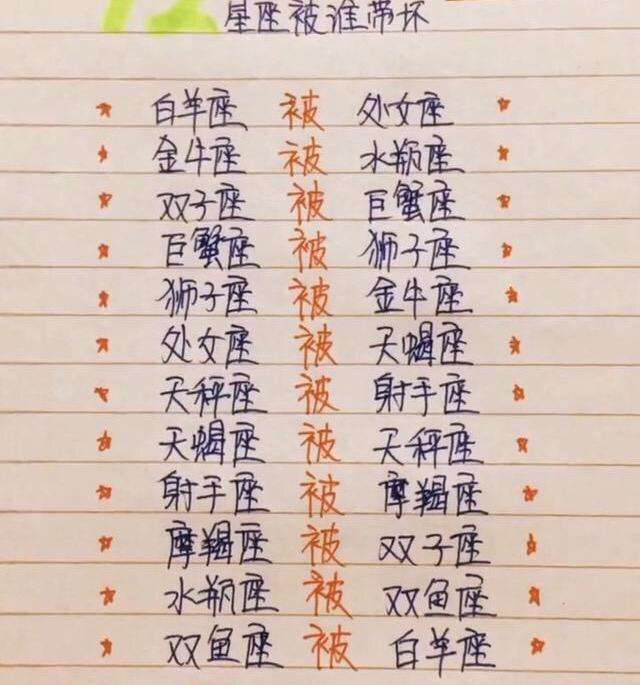 12
星座被谁带坏
白羊座 被 处女座
金牛座 被 水瓶座
双子座 被 巨蟹座
巨蟹座 被 狮子座
狮子座 被 金牛座
处女座 被 天蝎座
天秤座 被 射手座
天蝎座 被 天秤座
射手座 被 摩羯座
摩羯座 被 双子座
水瓶座 被 双鱼座
双鱼座 被 白羊座